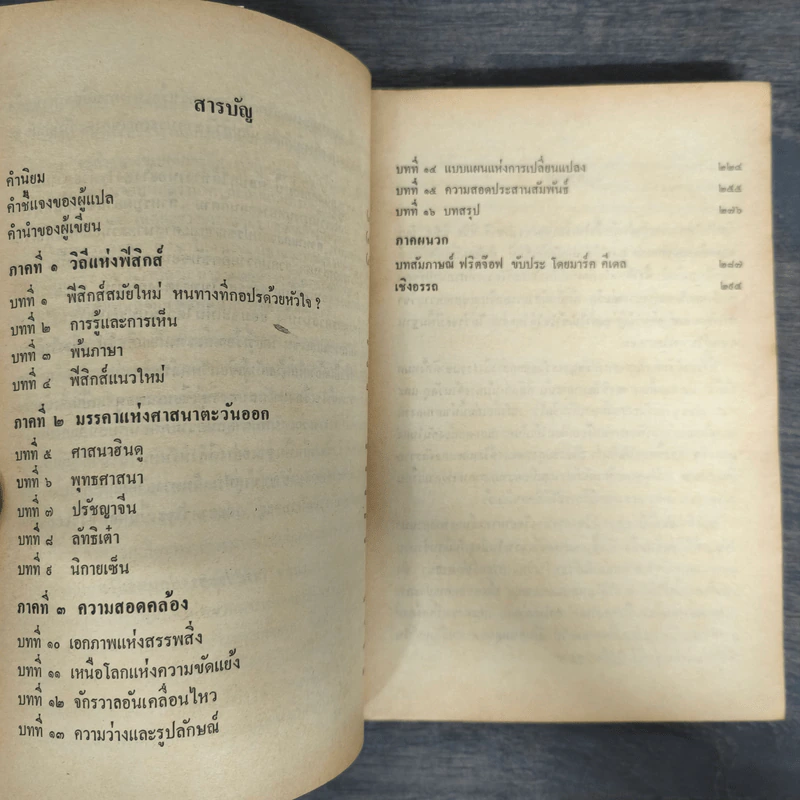 สารบัญ
คำนิยม
คำชี้แจงของผู้แปล
คำนำของผู้เขียน
ภาคที่ ๑ วิถีแห่งฟิสิกส์
บทที่ ๑ ฟิสิกส์สมัยใหม่ หนทางที่กอปรด้วยหัวใจ ?
บทที่ ๒ การรู้และการเห็น
บทที่ ๓ พ้นภาษา
บทที่ ๔ ฟิสิกส์แนวใหม่
ภาคที่ ๒ มรรคาแห่งศาสนาตะวันออก
บทที่ ๕ ศาสนาฮินดู
บทที่ ๖ พุทธศาสนา
บทที่ ๗ ปรัชญาจีน
บทที่ ๘ ลัทธิเต๋า
บทที่ ๙ นิกายเซ็น
ภาคที่ ๓ ความสอดคล้อง
บทที่ ๑๐ เอกภาพแห่งสรรพสิ่ง
บทที่ ๑๑ เหนือโลกแห่งความขัดแย้ง
บทที่ ๑๒ จักรวาลอันเคลื่อนไหว
บทที่ ๑๓ ความว่างและรูปลักษณ์
บทที่ ๑๔ แบบแผนแห่งการเปลี่ยนแปลง ๒๒๔
บทที่ ๑๕ ความสอดประสานสัมพันธ์ ๒๕๕
บทที่ ๑๖ บทสรุป ๒๗๖
ภาคผนวก
บทสัมภาษณ์ ฟริตจ๊อฟ ขับประ โดยมาร์ค คีเดล ๒๘๗
เชิงอรรถ ๒๙๔